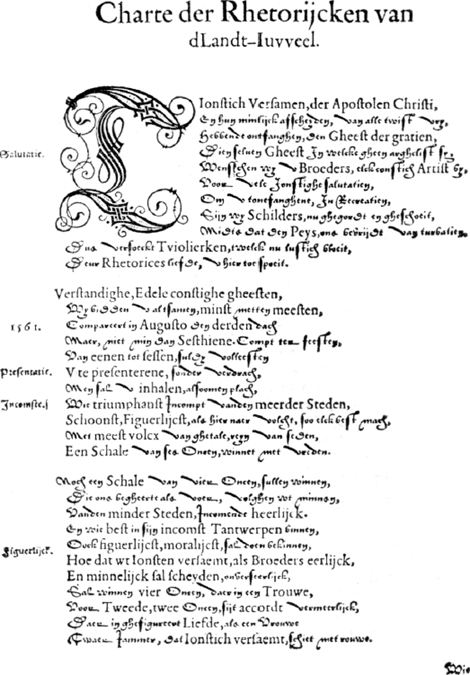 Charte der Rhetorijcken van
dLandt-Iuvveel.
Ionstich Versamen, der Apostolen Christi,
En hun minlijck afscheyden, van alle twist vry,
Hebbende ontfanghen, den Gheest der gratien,
Dien seluen Gheest In welcke gheen arghelist sy,
Salutatie.
Wenschen wy v Broeders, elck constich Artist by,
Voor vele Jonstighe salutatien,
Om v tonefanghene, In Recreatien,
Sijn wy Schilders, nu ghegordt en gheschoeit,
Midts dat den Peys, ons bevrijdt van turbatien,
Dus versoeckt Tviolieren, twelck nu lustich bloeit,
Deur Rhetorices liefde, v hier tot spoeit.
Verstandighe, Edele constighe gheesten,
Wy bidden v altsamen, minst metten meesten,
1561.
Compareert in Augusto den derden dach
Maer, niet min dan Sesthiene. Compt ter feesten,
Van eenen tot sessen, suldy volleesten
Presentatie.
V te presenterene, sonder verdrach,
Men sal v inhalen, alsoomen plach,
Incomste.
Wie triumphanst Incompt vanden meerder Steden,
Schoonst, Figuerlijcst, als hier naer volcht, soo elck best mach,
Met meest volcx van ghetale, reyn van seden,
Een Schale van ses Oncen, winnet met vreden.
Noch een Schale van vier Oncen, sullen winnen,
Die ons begheerte als voer, volghen wt minnen,
Vanden minder Steden, Incomende heerlijck.
En wie best in sijn incomst Tantwerpen binnen,
Figuerlijck.
Oock figuerlijcst, moralijcst, sal doen bekinnen,
Hoe dat wt Ionsten versaemt, als Broeders eerlijck,
En minnelijck sal scheyden, onverseerlijck,
Sal winnen vier Oncen, daer in een Trouwe,
Voor Tweede, twee Oncen, sijt accordt vermeerlijck,
Daer in ghefigureert Liefde, als een Vrouwe
Twaer Jammer, dat Ionstich versaemt, schiet met rouwe.
Wie